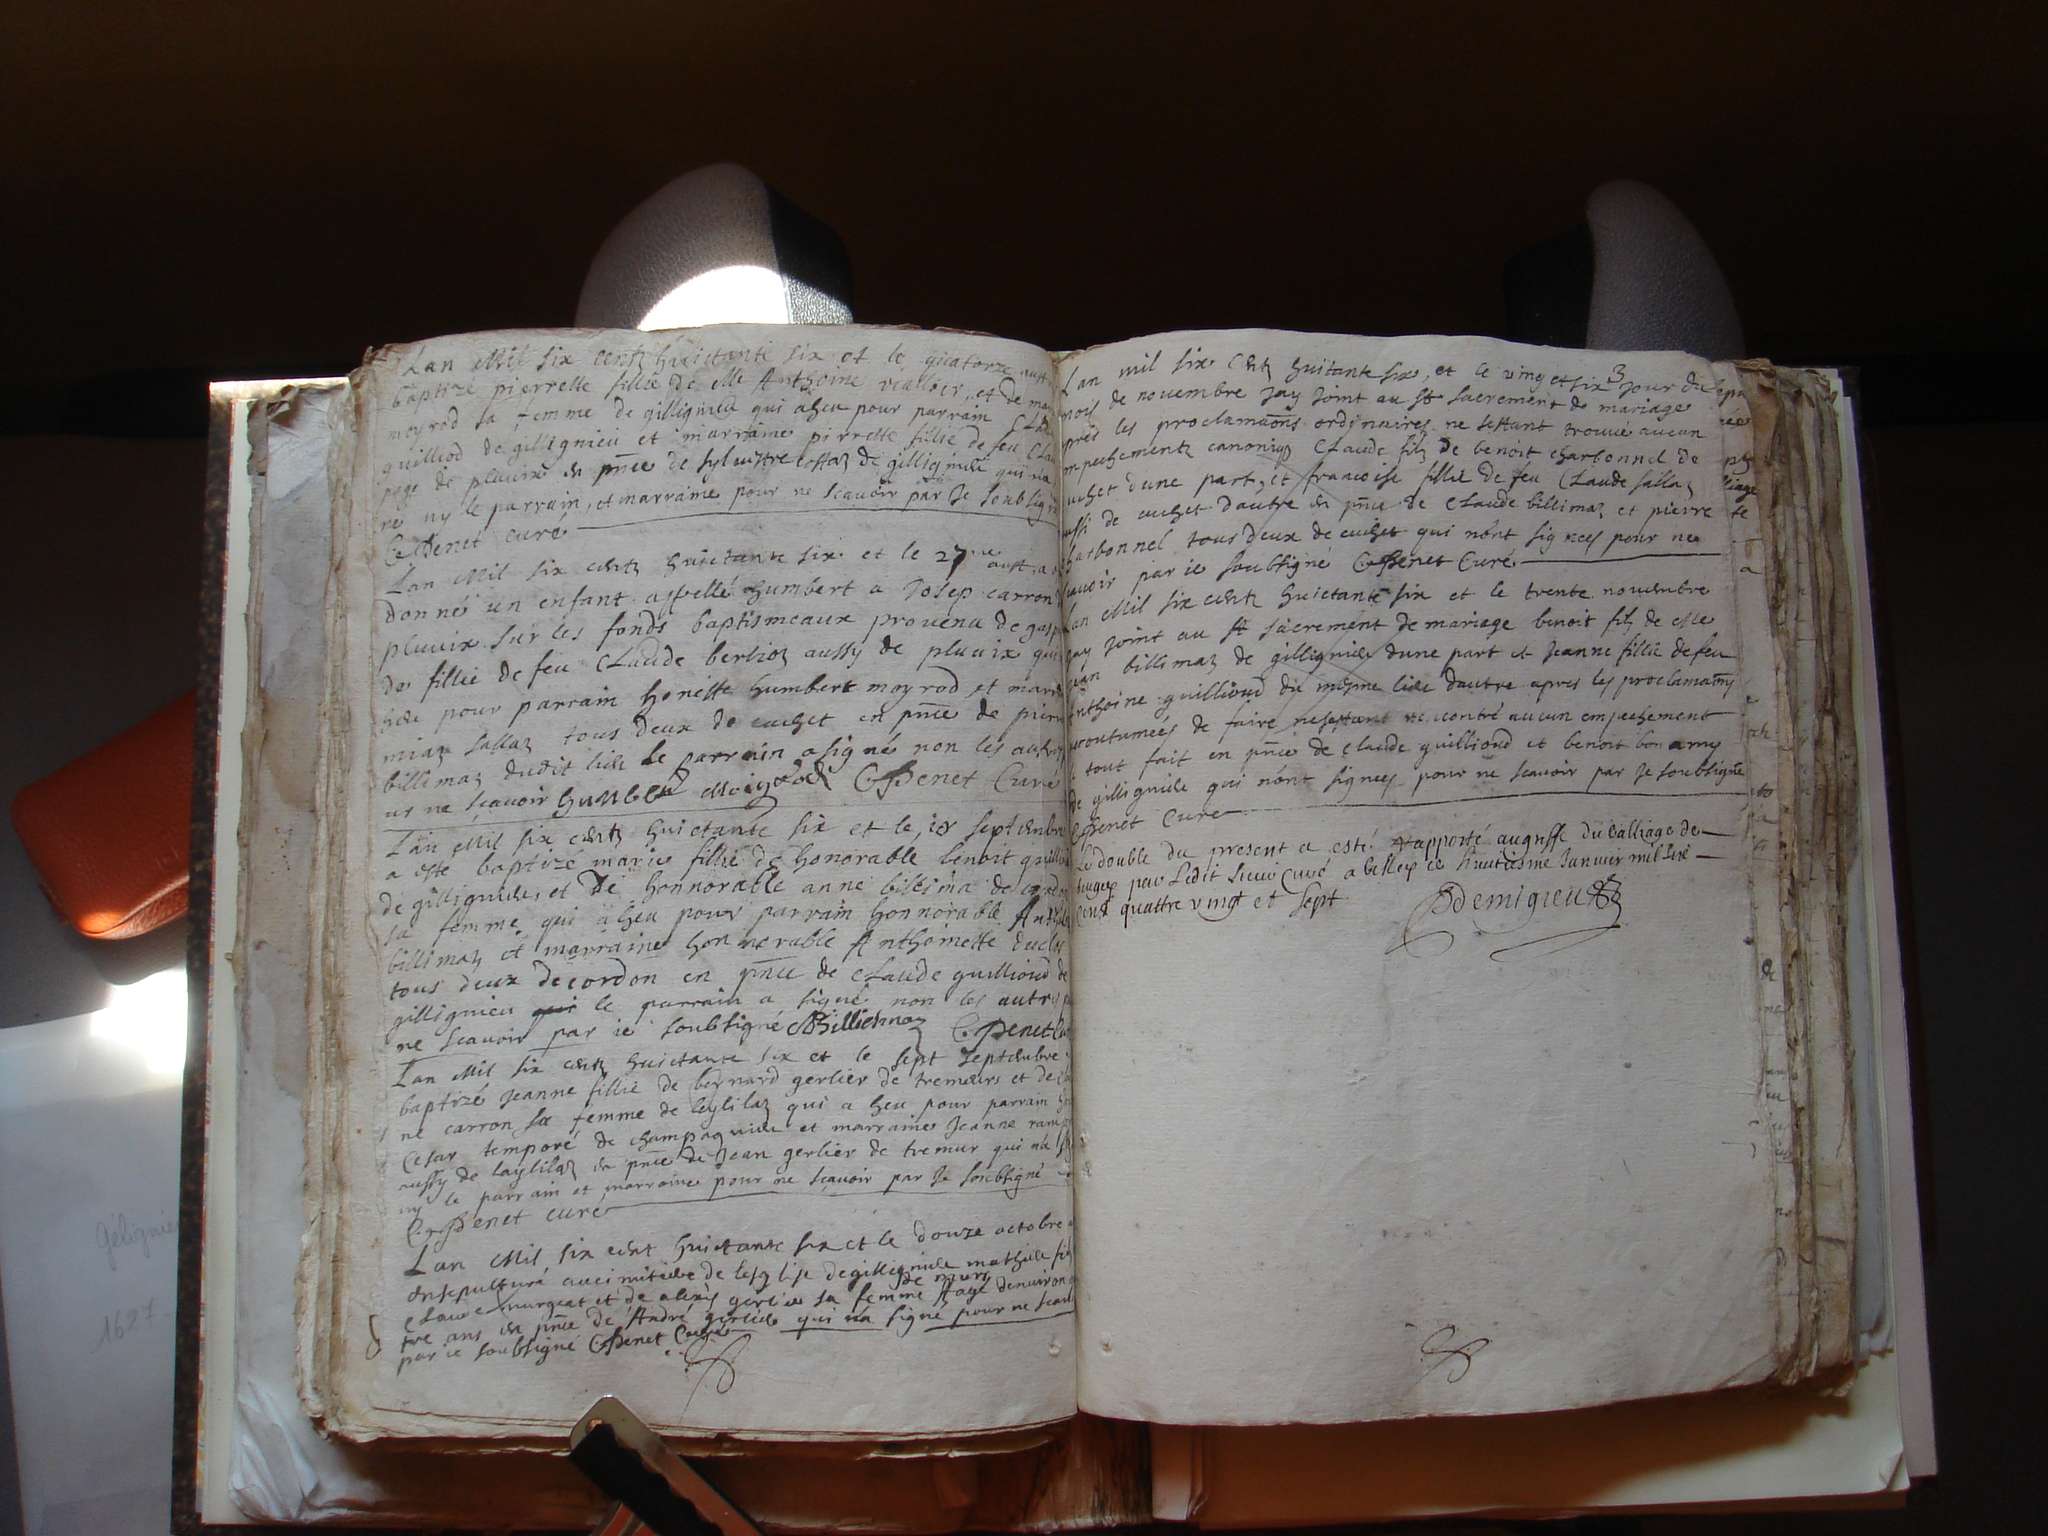 Lan Mil six centz huictante six et le quatorze aust
baptizé pierrette fillie de Me Anthoine vialler et de
moyrod sa femme de gillignieu qui aheu pour parrain
guilliod de gillignieu et marraine pirrette fillie de feu
page de pluvix en pnce de sylvestre cossaz de gillignieu qui na
ne ny le parrain, et marraine pour ne scavoir par Je soubsigné
C Penet curé
Lan Mil six centz huictante six et le 27me aust
donné un enfant appellé humbert a Josep carron
pluvix sur les fonds baptismeaux provenu de
de fillie de feu Claude berlioz aussy de pluvix
heu pour parrain honeste humbert moyrod et
miaz sallaz tous deux de cuchet en pnce de
billimaz dudit lieu le parrain a signé non les
ur ne sçavoir humbert Moiyrod C Penet Curé
Lan Mil six centz huictante six et le, 18 septembre
a este baptizé marie fillie de honorable benoit
de gillignieu, et de honnorable anne billima de cordon
sa femme qui a heu pour parrain honnorable
billimaz et marraine honnorable Anthoinette
tous deux de cordon en pnce de Claude guillioud de
gillignieu qui le parrain a signé non les autres
ne scavoir par ie soubsigné Billiemaz C Penet
Lan Mil six centz huictante six et le sept septembre
baptizé Jeanne fillie de bernard gerlier de tremurs et de
ne carron sa femme de leylilaz qui a heu pour parrain
Cesar temporé de champagnieu et marraine Jeanne
aussy de laylilaz en pnce de Jean gerlier de tremur qui na
ny le parrain et marraine pour ne sçavoir par Je soubsigné
C Penet curé
Lan Mil six cent huictante six et le douze octobre
ensepulturé au cimitiere de lesglise de gillignieu mathieu
de murs
Claude murgeat et de alexis gerlier sa femme Aagé denviron
tre ans en pnce de André gerlier qui na signé pour ne
par ie soubsigné C Penet Curé
3
Lan mil six centz huictante six, et le vingt et six Jour du
mois de novembre Jay Joint au St sacrement de mariage
pres les proclamaons ordinaires ne sestant trouvé aucun
mpechementz canoniqz Claude filz de benoit charbonnel de
cuchet dune part, et francoise fillie de feu Claude sallaz
ussi de cuchet dautre en pnce de Claude billimaz et pierre
harbonnel tous deux de cuchet qui nont signes pour ne
scavoir par ie soubsigné C Penet Curé
Lan Mil six centz huictante six et le trente novembre
Jay Joint au St sacrement de mariage benoit filz de
Jean billimaz de gillignieu dune part et Jeanne fillie de feu
nthoine guillioud du mesme lieu dautre apres les proclamaons
ccoutumées de faire ne sestant rencontré aucun empechement
tout fait en pnce de Claude guillioud et benoit bon amy
de gillignieu qui nont signes pour ne scavoir par Je soubsigné
C Penet Curé
Le double du present a esté rapporté au greffe du Balliage de
bugey par Ledit sieur Curé a belley ce huictiesme Janvier mil six
Cent quattre vingt et sept
Demigieu